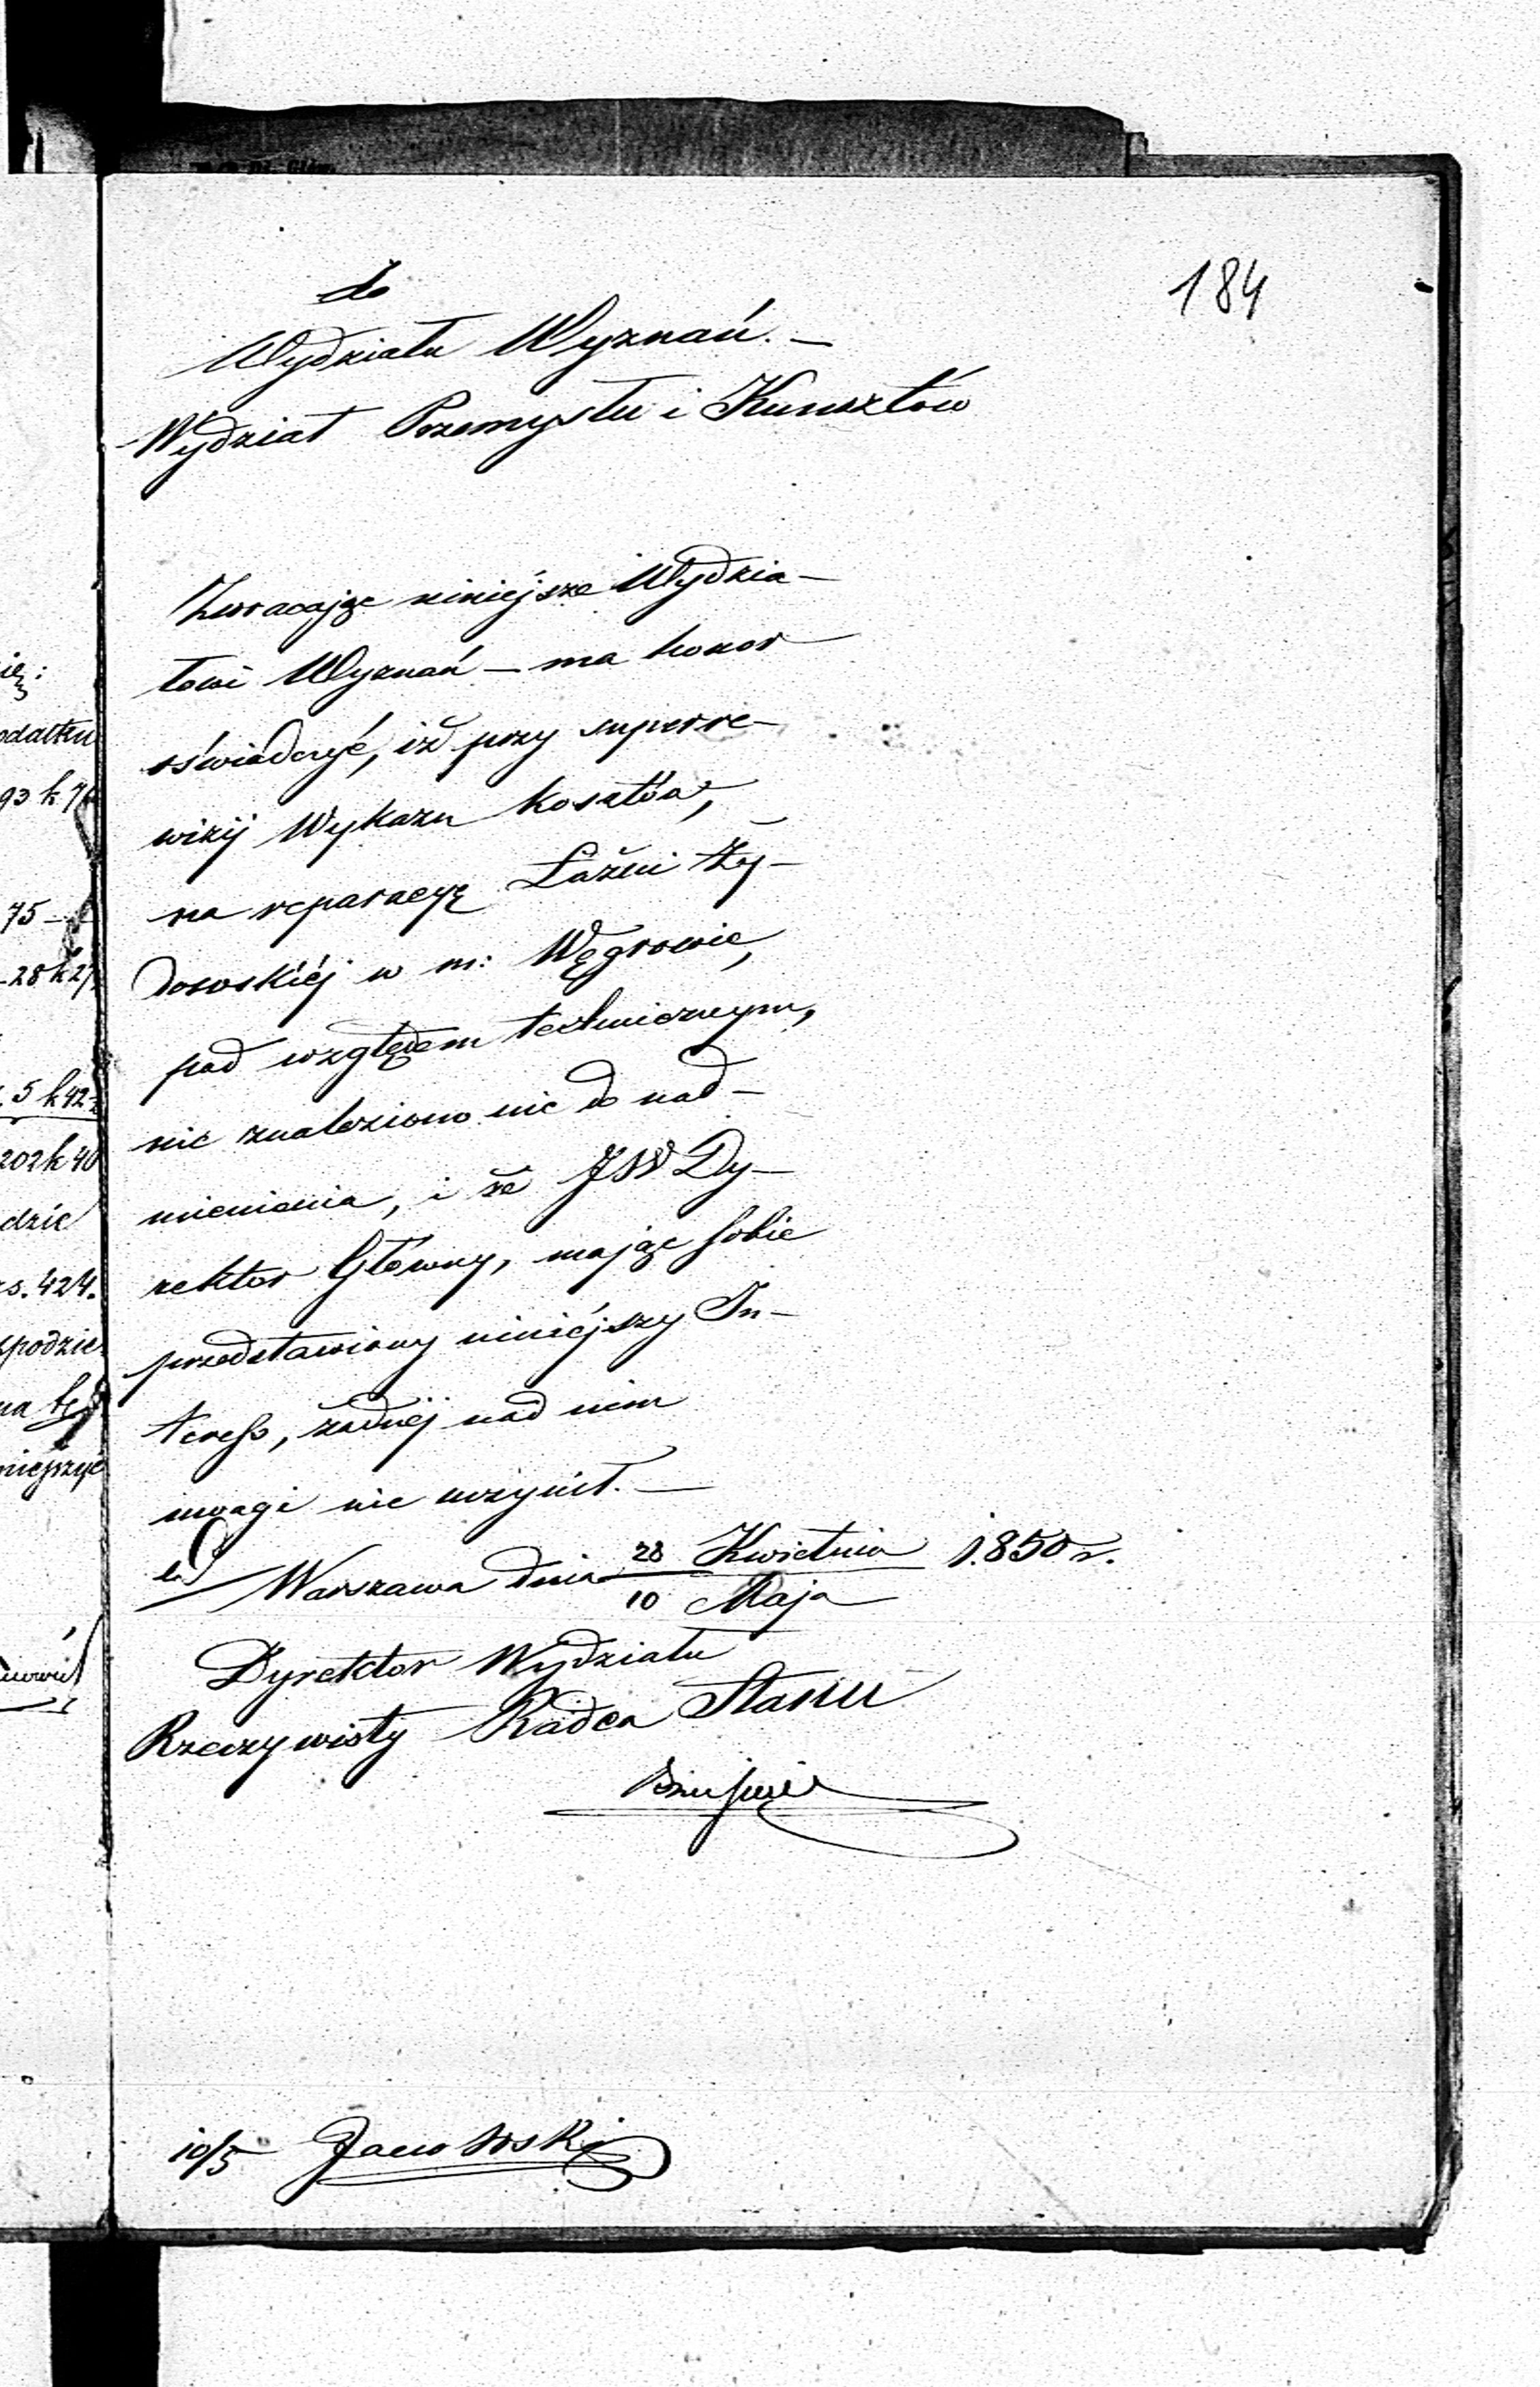 184
do
Wydziału Wyznań. —
Wydział Przemysłu i Kunsztów
Zwracając niniejsze Wydzia—
łowi Wyznań — ma honor
oświadczyć, iż przy superre—
wizij Wykazu kosztów,
na reparacyę Łaźni Ży—
dowskiéj w m: Węgrowie,
pod względem technicznym,
nic znaleziono nic do nad—
mienienia, i że JW Dy—
rektor Główny, mając sobie
przedstawiony niniéjszy In—
teress, żadnéj nad nim
uwagi nie uczynił. —
Warszawa dnia 28 Kwietnia / 10 Maja 1850 r.
Dyrektor Wydziału
Rzeczywisty Radca Stanu
10/5
ię:
odatku
93 k
75 —
28 k 27
5 k 42
202 k 40
dzie
s. 424.
spodzie
na tę
niejszyć